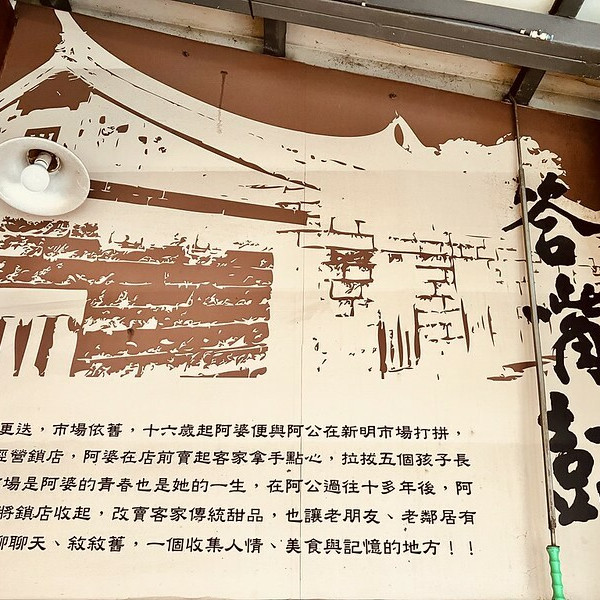 更迭，市場依舊，十六歲起阿婆便與阿公在新明市場打拼，
經營鎖店，阿婆在店前賣起客家拿手點心，拉拔五個孩子長
市場是阿婆的青春也是她的一生，在阿公過往十多年後，阿
將鎖店收起，改賣客家傳統甜品，也讓老朋友、老鄰居有
聊聊天、敘敘舊，一個收集人情、美食與記憶的地方！！
答嘴鼓